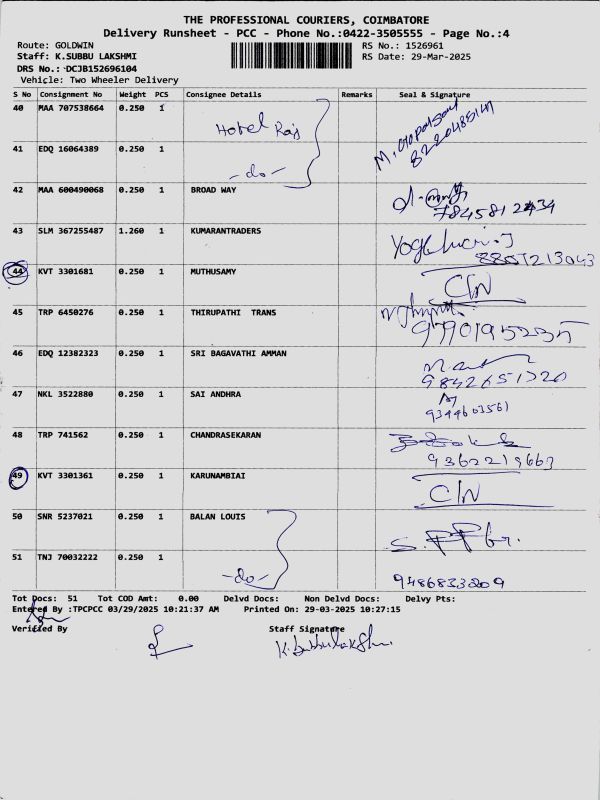 THE PROFESSIONAL COURIERS, COIMBATORE
Delivery Runsheet - PCC - Phone No.:0422-3505555 - Page No.:4
Route: GOLDWIN RS No.: 1526961
Staff: K.SUBBU LAKSHMI RS Date: 29-Mar-2025
DRS No.: DCJB152696104
Vehicle: Two Wheeler Delivery
S No Consignment No Weight PCS Consignee Details Remarks Seal & Signature
40 MAA 707538664 0.250 1 Hotel Raj
41 EDQ 16064389 0.250 1 -do-
42 MAA 600490068 0.250 1 BROAD WAY
7845812434
43 SLM 367255487 1.260 1 KUMARANTRADERS
8807213043
44 KVT 3301681 0.250 1 MUTHUSAMY C/N
45 TRP 6450276 0.250 1 THIRUPATHI TRANS
46 EDQ 12382323 0.250 1 SRI BAGAVATHI AMMAN
9842651720
47 NKL 3522880 0.250 1 SAI ANDHRA
9344603561
48 TRP 741562 0.250 1 CHANDRASEKARAN
9362219663
49 KVT 3301361 0.250 1 KARUNAMBIAI C/N
50 SNR 5237021 0.250 1 BALAN LOUIS
51 TNJ 70032222 0.250 1 -do-
9486833209
Tot Docs: 51 Tot COD Amt: 0.00 Delvd Docs: Non Delvd Docs: Delvy Pts:
Entered By :TPCPCC 03/29/2025 10:21:37 AM Printed On: 29-03-2025 10:27:15
Verified By Staff Signature
K. Subbulakshmi